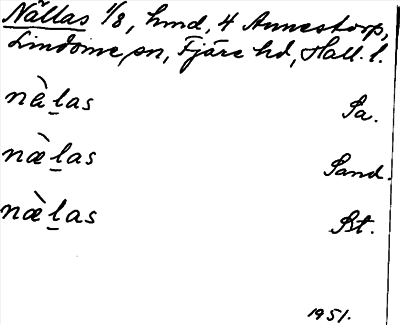 Nällas 1/8, hmd, 4 Annestorp,
Lindome sn, Fjäre hd, Hall. l.
nà̱las Sa.
næ̀l̲as Sand.
næ̀l̲as Bt.
1951.